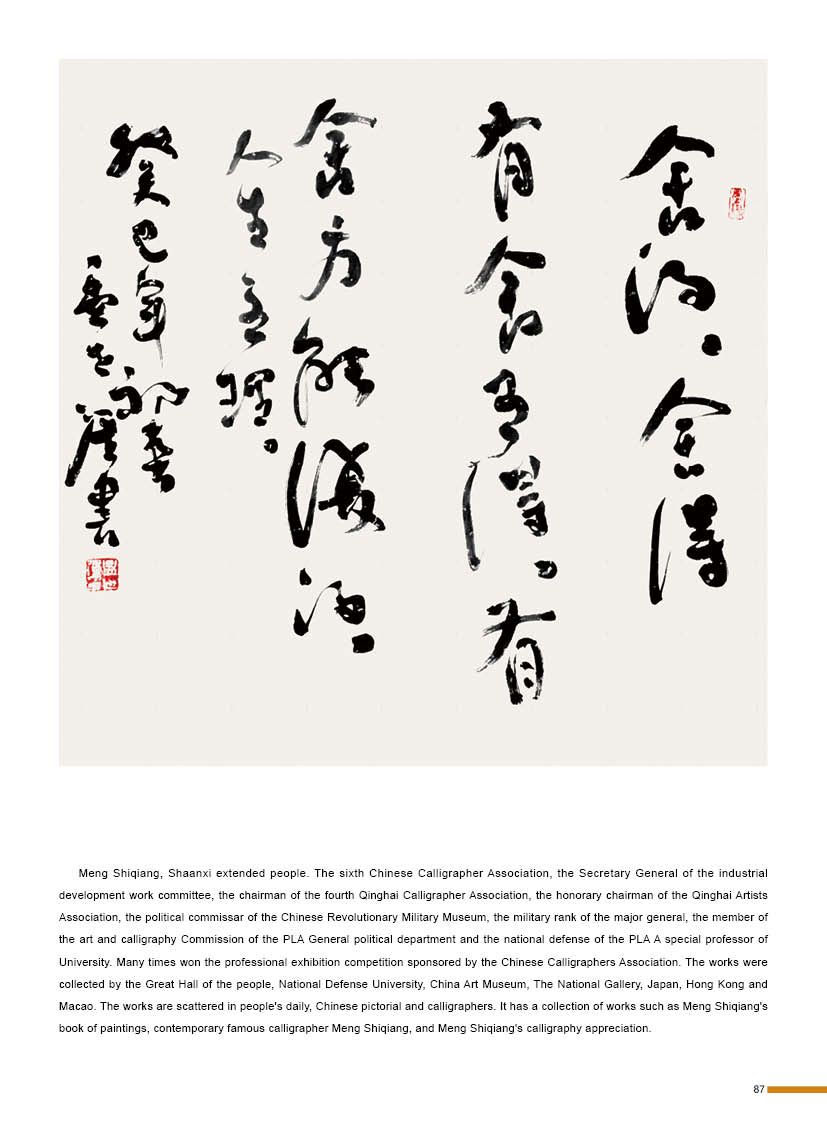 舍得、舍得
有舍得、有
舍方能得
人生理。
癸巳年
書
Meng Shiqiang, Shaanxi extended people. The sixth Chinese Calligrapher Association, the Secretary General of the industrial
development work committee, the chairman of the fourth Qinghai Calligrapher Association, the honorary chairman of the Qinghai Artists
Association, the political commissar of the Chinese Revolutionary Military Museum, the military rank of the major general, the member of
the art and calligraphy Commission of the PLA General political department and the national defense of the PLA A special professor of
University. Many times won the professional exhibition competition sponsored by the Chinese Calligraphers Association. The works were
collected by the Great Hall of the people, National Defense University, China Art Museum, The National Gallery, Japan, Hong Kong and
Macao. The works are scattered in people's daily, Chinese pictorial and calligraphers. It has a collection of works such as Meng Shiqiang's
book of paintings, contemporary famous calligrapher Meng Shiqiang, and Meng Shiqiang's calligraphy appreciation.
87